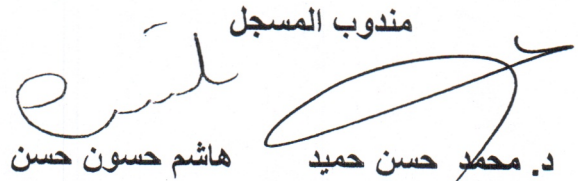 مندوب المسجل
د. محمد حسن حميد هاشم حسون حسن